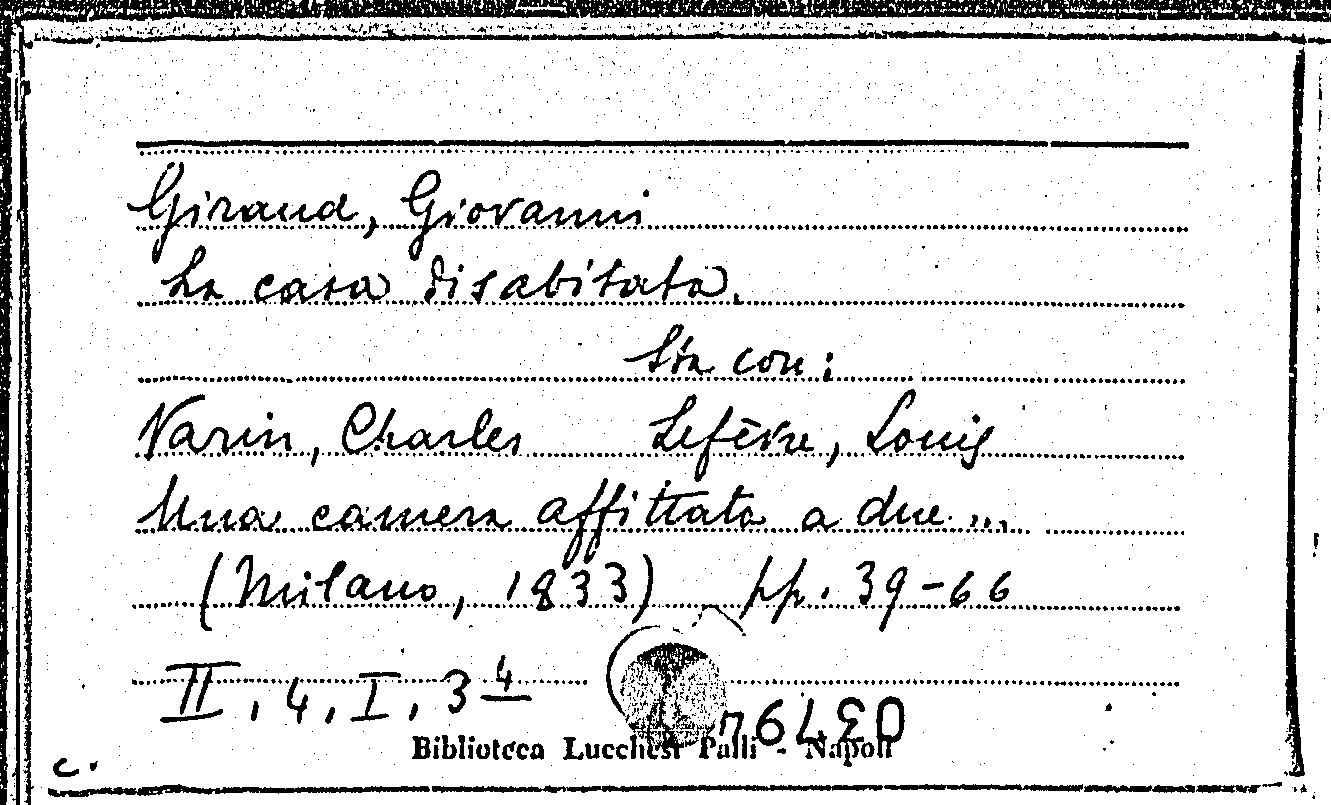 Giraud, Giovanni
La casa disabitata.
Sta con:
Varin, Charles Lefèvre, Louis
Una camera affittata a due...
(Milano, 1833) pp. 39-66
II, 4, I, 3 4
Biblioteca Lucchesi Palli - Napoli
c.